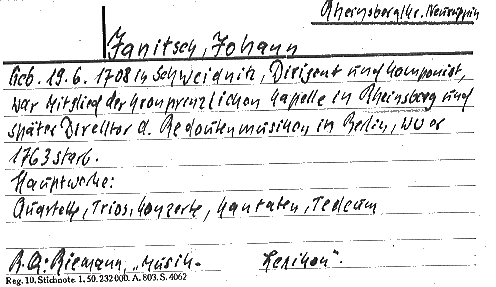 Rheinsberg/Kr. Neuruppin
Janitsch, Johann
Geb. 19.6.1708 in Schweidnitz, Dirigent und Komponist,
war Mitglied der Kronprinzlichen Kapelle in Rheinsberg und
später Direktor d. Redoutenmusiken in Berlin, wo er
1763 starb.
Hauptwerke:
Quartette, Trios, Konzerte, Kantaten, Tedeum
R.Q: Riemann, "Musik- Lexikon".
Reg. 10. Stichnote. 1. 50. 232000. A. 803. S. 4062